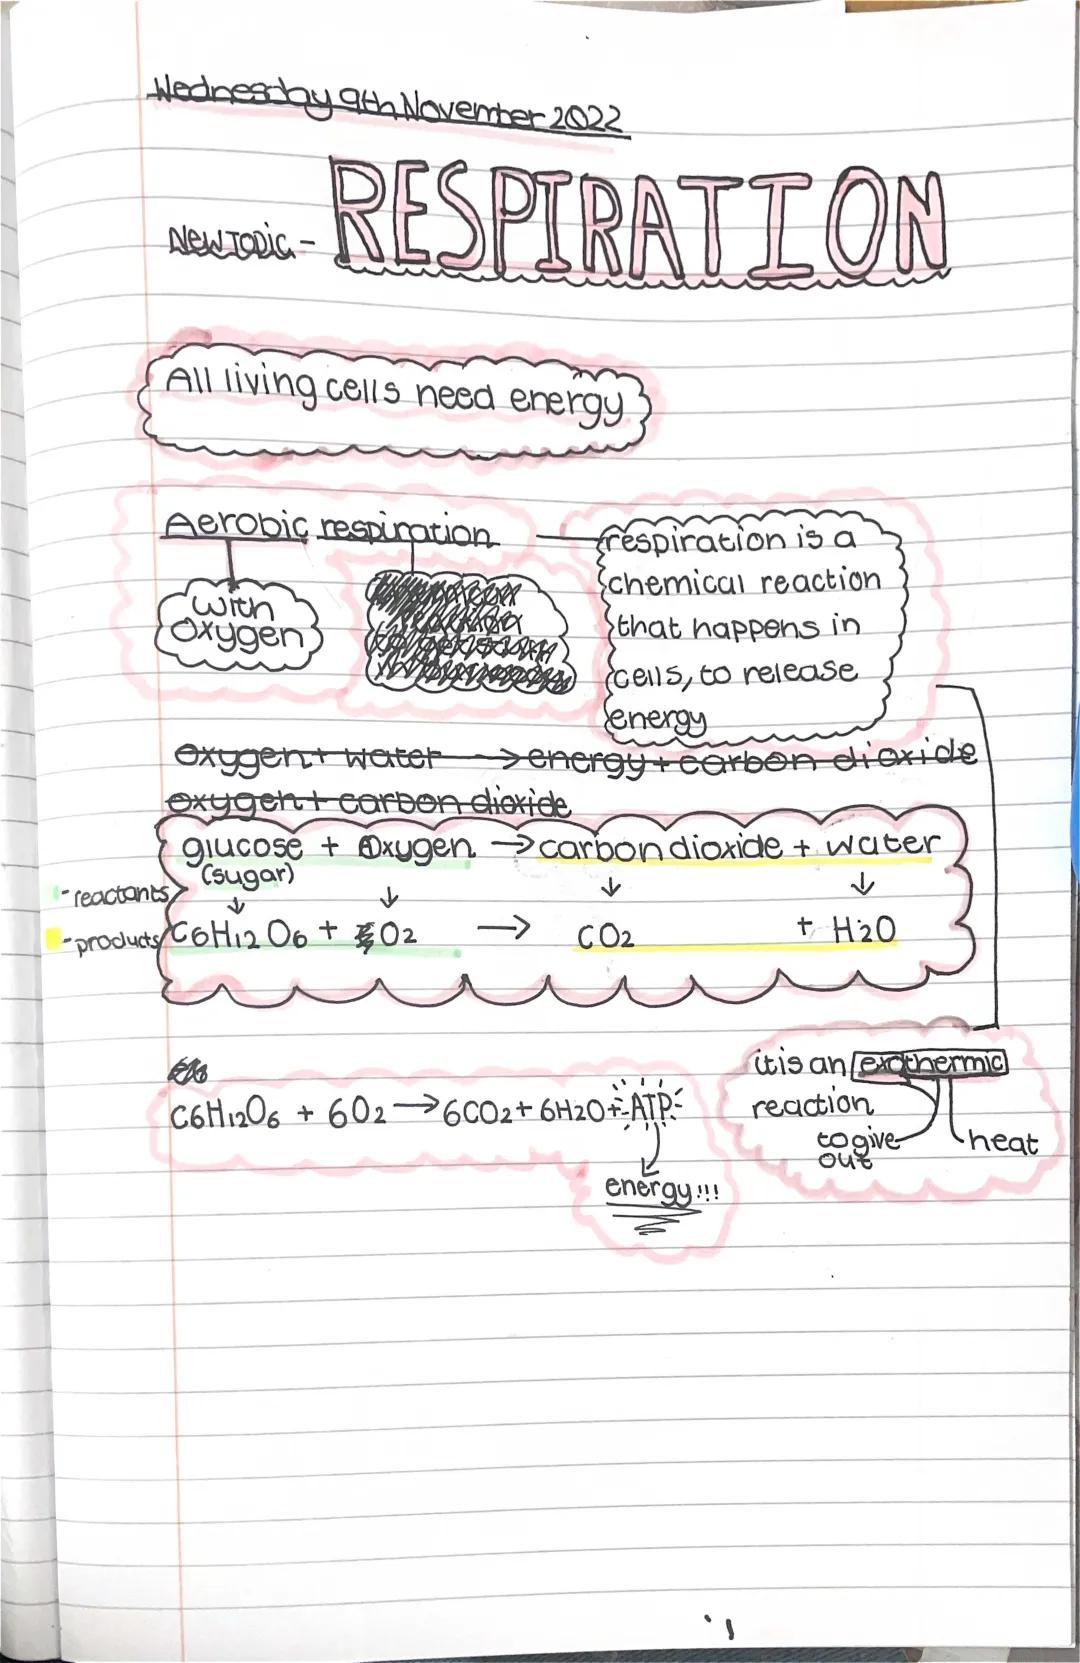 Wednesday 9th November 2022
New Topic - RESPIRATION
All living cells need energy
Aerobic respiration
with
oxygen
respiration is a
chemical reaction
that happens in
cells, to release
energy
oxygen + water → energy + carbon dioxide
oxygen + carbon dioxide
glucose + Oxygen → carbon dioxide + water
(sugar)
- reactants
- products
C6H12O6 + O2 → CO2 + H2O
C6H12O6 + 6O2 → 6CO2 + 6H2O + ATP
energy!!!
it is an exothermic
reaction
to give
out
heat